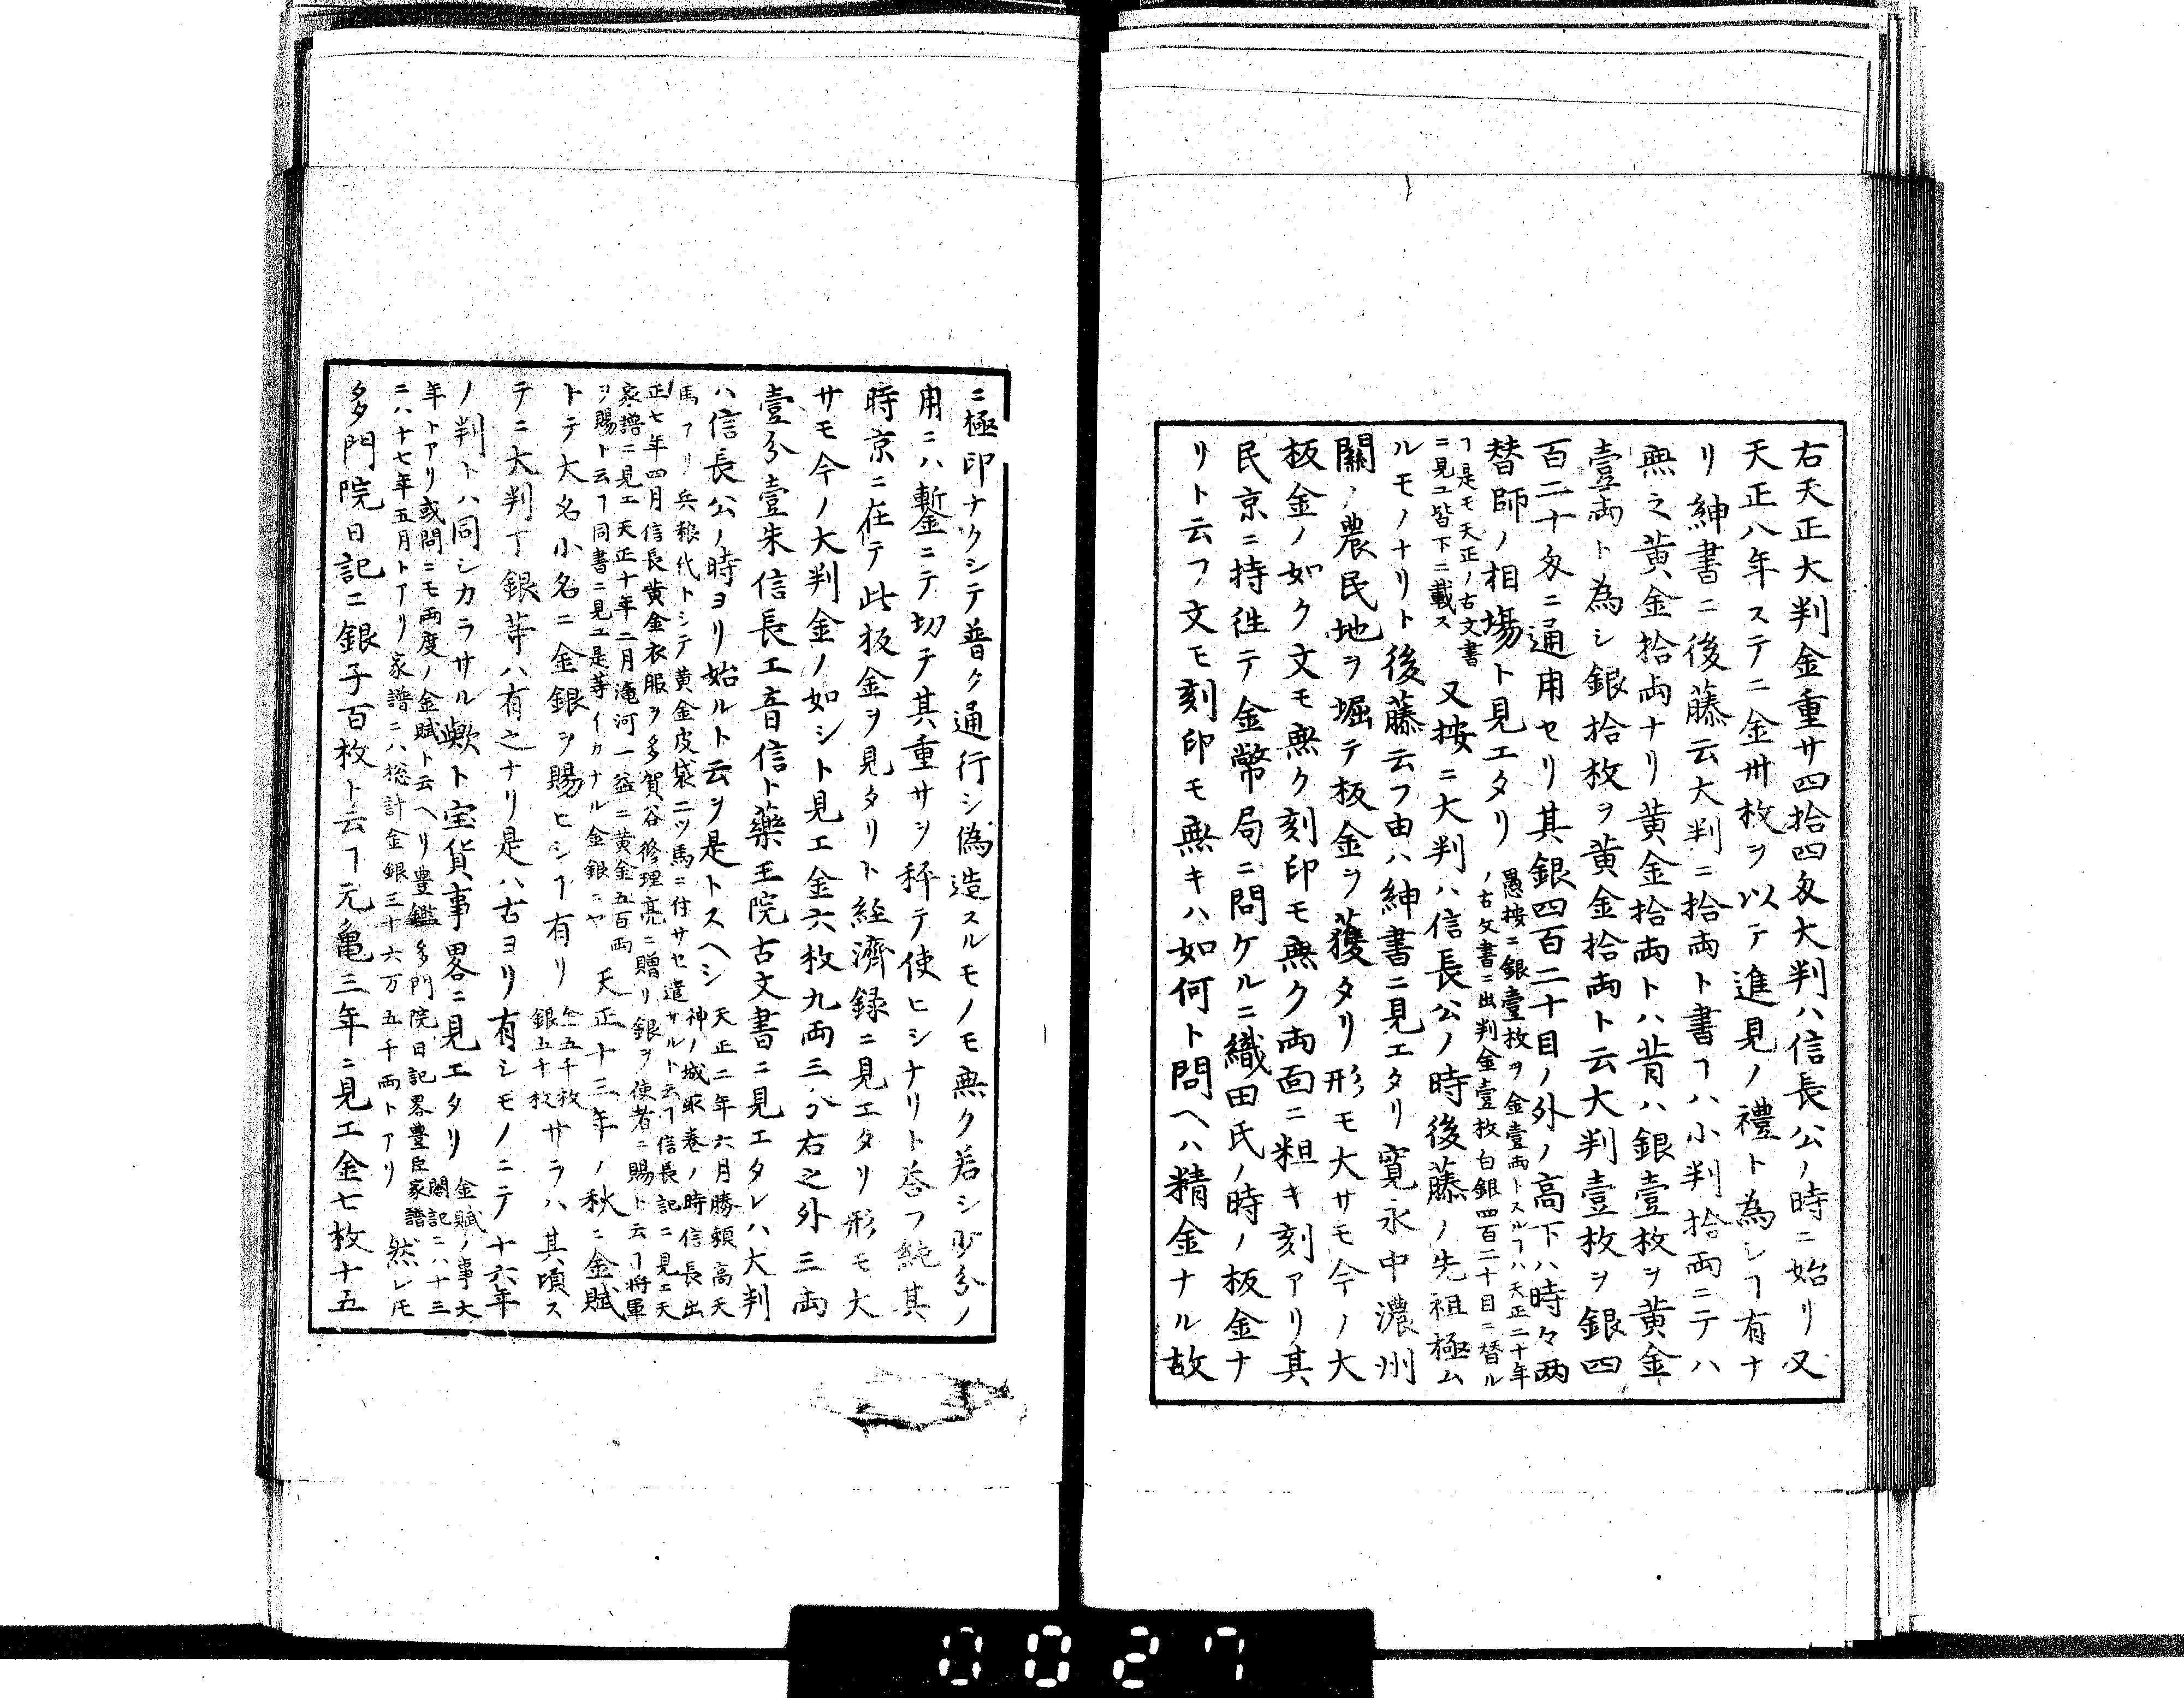 右天正大判金重サ四拾四匁大判ハ信長公ノ時ニ始リ又
天正八年ステニ金卅枚ヲ以テ進見ノ禮ト為シヿ有ナ
リ紳書ニ後藤云大判ニ拾両ト書ヿハ小判拾両ニテハ
無之黄金拾両ナリ黄金拾両トハ昔ハ銀壹枚ヲ黄金
壹両ト為シ銀拾枚ヲ黄金拾両ト云大判壹枚ヲ銀四
百二十匁ニ通用セリ其銀四百二十目ノ外ノ高下ハ時々両
替師ノ相場ト見エタリ
愚按ニ銀壹枚ヲ金壹両トスルヿハ天正二十年
ノ古文書ニ出判金壹枚白銀四百二十目ニ替ル
ヿ是モ天正ノ古文書
ニ見ユ皆下ニ載ス
又按ニ大判ハ信長公ノ時後藤ノ先祖極ム
ルモノナリト後藤云フ由ハ紳書ニ見エタリ寛永中濃州
關ノ農民地ヲ堀テ板金ヲ獲タリ形モ大サモ今ノ大
板金ノ如ク文モ無ク刻印モ無ク両面ニ粗キ刻アリ其
民京ニ持徃テ金幣局ニ問ケルニ織田氏ノ時ノ板金ナ
リト云フ文モ刻印モ無キハ如何ト問ヘハ精金ナル故
ニ極印ナクシテ普ク通行シ偽造スルモノモ無ク若シ少分ノ
用ニハ鏨ニテ切チ其重サヲ秤テ使ヒシナリト答フ純其
時京ニ在テ此板金ヲ見タリト経濟録ニ見エタリ形モ大
サモ今ノ大判金ノ如シト見エ金六枚九両三分右之外三両
壹分壹朱信長エ音信ト藥王院古文書ニ見エタレハ大判
ハ信長公ノ時ヨリ始ルト云ヲ是トスヘシ
天正二年六月勝頼高天
神ノ城取巻ノ時信長出
馬アリ兵粮代トシテ黄金皮袋二ツ馬ニ付サセ遣サルト云ヿ信長記ニ見エ天
正七年四月信長黄金衣服ヲ多賀谷修理亮ニ贈リ銀ヲ使者ニ賜ト云ヿ将軍
家譜ニ見エ天正十年二月滝河一益ニ黄金五百両
ヲ賜ト云ヿ同書ニ見ユ是等イカナル金銀ニヤ
天正十三年ノ秋ニ金賦
トテ大名小名ニ金銀ヲ賜ヒシヿ有リ
金五千枚
銀五千枚
サラハ其頃ス
テニ大判丁銀等ハ有之ナリ是ハ古ヨリ有シモノニテ十六年
ノ判トハ同シカラサル歟ト宝貨事畧ニ見エタリ
金賦ノ事大
閤記ニハ十三
年トアリ或問ニモ両度ノ金賦ト云ヘリ豊鑑多門院日記畧豊臣家譜
ニハ十七年五月トアリ家譜ニハ総計金銀三十六万五千両トアリ
然レ𪜈
多門院日記ニ銀子百枚ト云ヿ元亀三年ニ見エ金七枚十五
0027